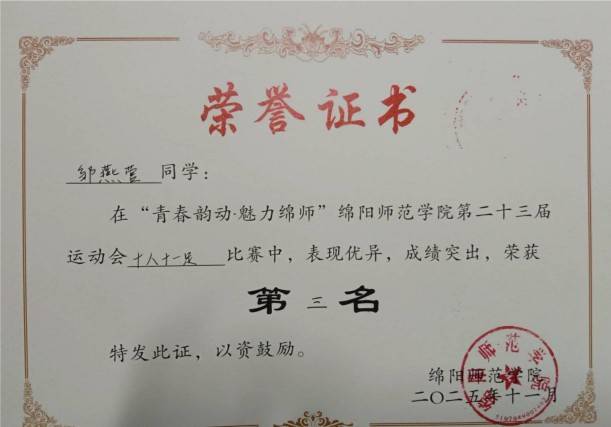 荣誉证书
邹燕萱同学：
在“青春韵动·魅力绵师”绵阳师范学院第二十三届
运动会十人十一足比赛中，表现优异，成绩突出，荣获
第三名
特发此证，以资鼓励。
绵阳师范学院
二〇二五年十一月
绵阳师范学院